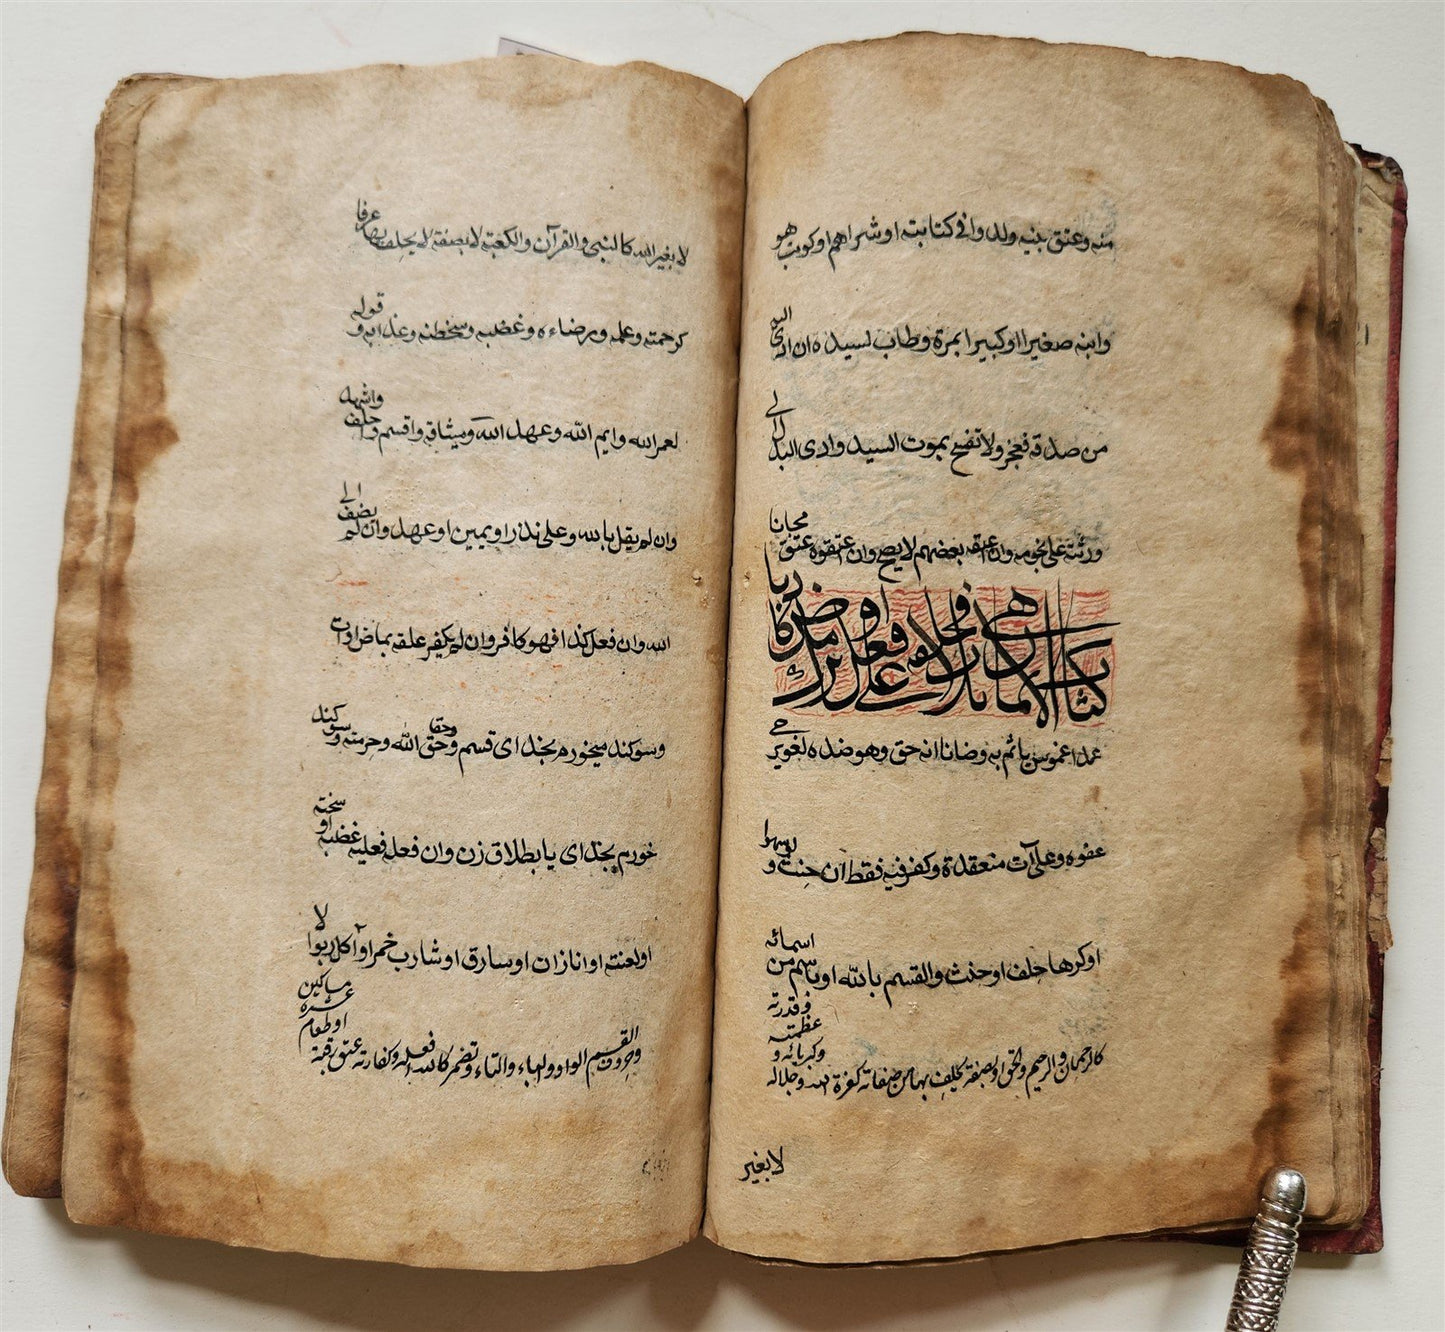 منه وعتق بنيه ولدوا في كتابته او شراهم او كوتب هو
وابنه صغيرا او كبيرا بمرة وطاب لسيده ان ادى اليه
من صدقة فعجز ولا تفسخ بموت السيد وادى البدل الى
ورثته على نجومه وان اعتقه بعضهم لا يصح وان اعتقوه عتق مجانا
كتاب الايمان هي حلفه على فعل او ترك ماض كاذبا
عمدا غموس يأثم به وضانا انه حق وهو ضده لغو يرجى
عفوه وعلى آت منعقدة وكفر فيه فقط ان حنث ولو سهوا
او كرها حلف او حنث والقسم بالله او باسم من اسمائه
كالرحمان والرحيم والحق او بصفة يحلف بها من صفاته كعزة الله وجلاله وكبريائه و عظمته و قدرته
لا بغير
لا بغير الله كالنبي والقرآن والكعبة لا بصفة لا يحلف بها عرفا
كرحمته وعلمه ورضاءه وغضبه وسخطه وعذابه و قوله
لعمر الله وايم الله وعهد الله وميثاقه واقسم واحلف واشهد
وان لم يقل بالله وعلى نذر او يمين او عهد وان لم يضف الى
الله وان فعل كذا فهو كافر وان لم يكفر علقه بماض او آت
وسوكند ميخورم بخداى قسم وحقا وحق الله وحرمته وسوكند
خورم بخداى يا بطلاق زن وان فعل فعليه غضبه او سخته
او لعنته او انا زان او سارق او شارب خمر او آكل ربوا لا
وحروف القسم الواو والباء والتاء وتضمر كالله افعله وكفارته عتق رقبة او طعام عشرة مساكين